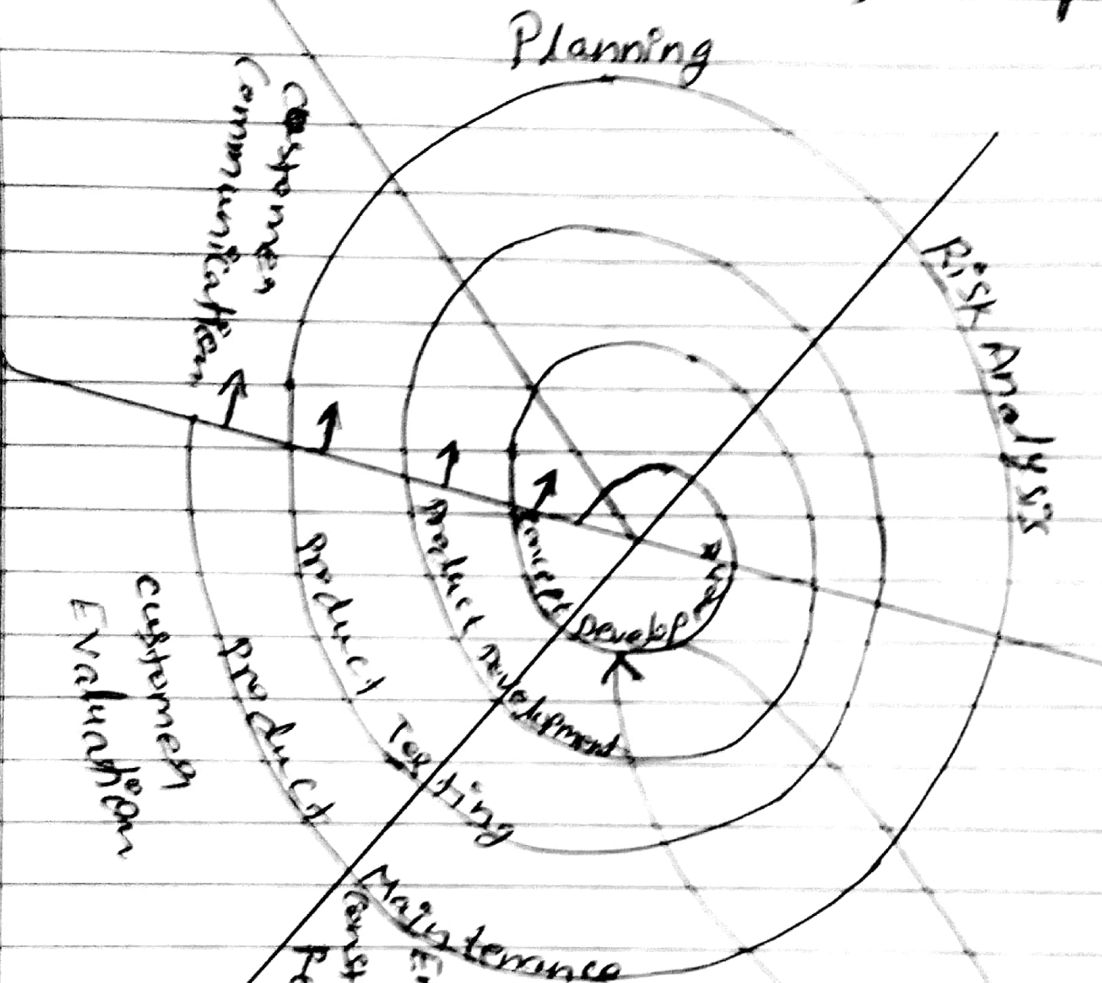 Planning
Customer
Communication
Risk Analysis
Concept Develop
Product Development
Product Testing
Product Maintenance
Customer
Evaluation